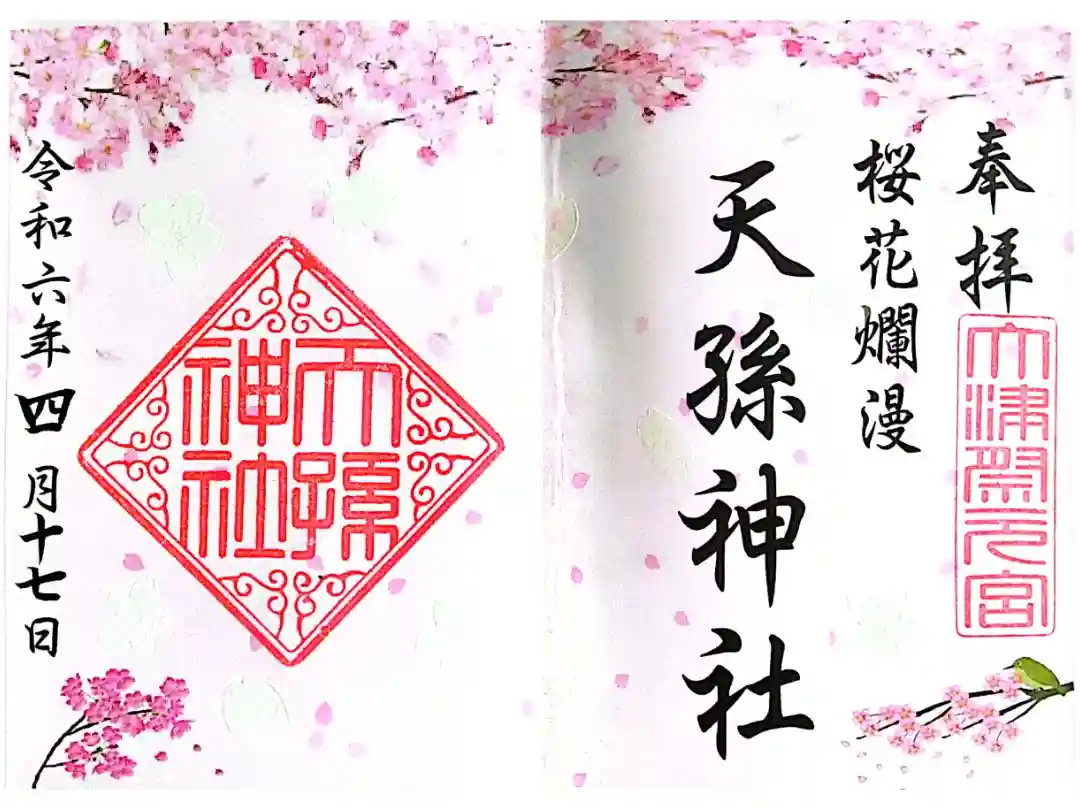 奉拝
大津祭元宮
桜花爛漫
天孫神社
天孫
神社
令和六年四月十七日